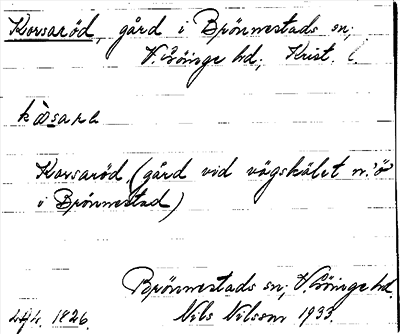 Korsaröd, gård i Brönnestads sn;
V. Göinge hd; Krist. l.
kåsarö
Korsaröd, (gård vid vägskälet n. ö
i Brönnestad)
Brönnestads sn; V. Göinge hd.
Nils Nilsson 1933.
1826.